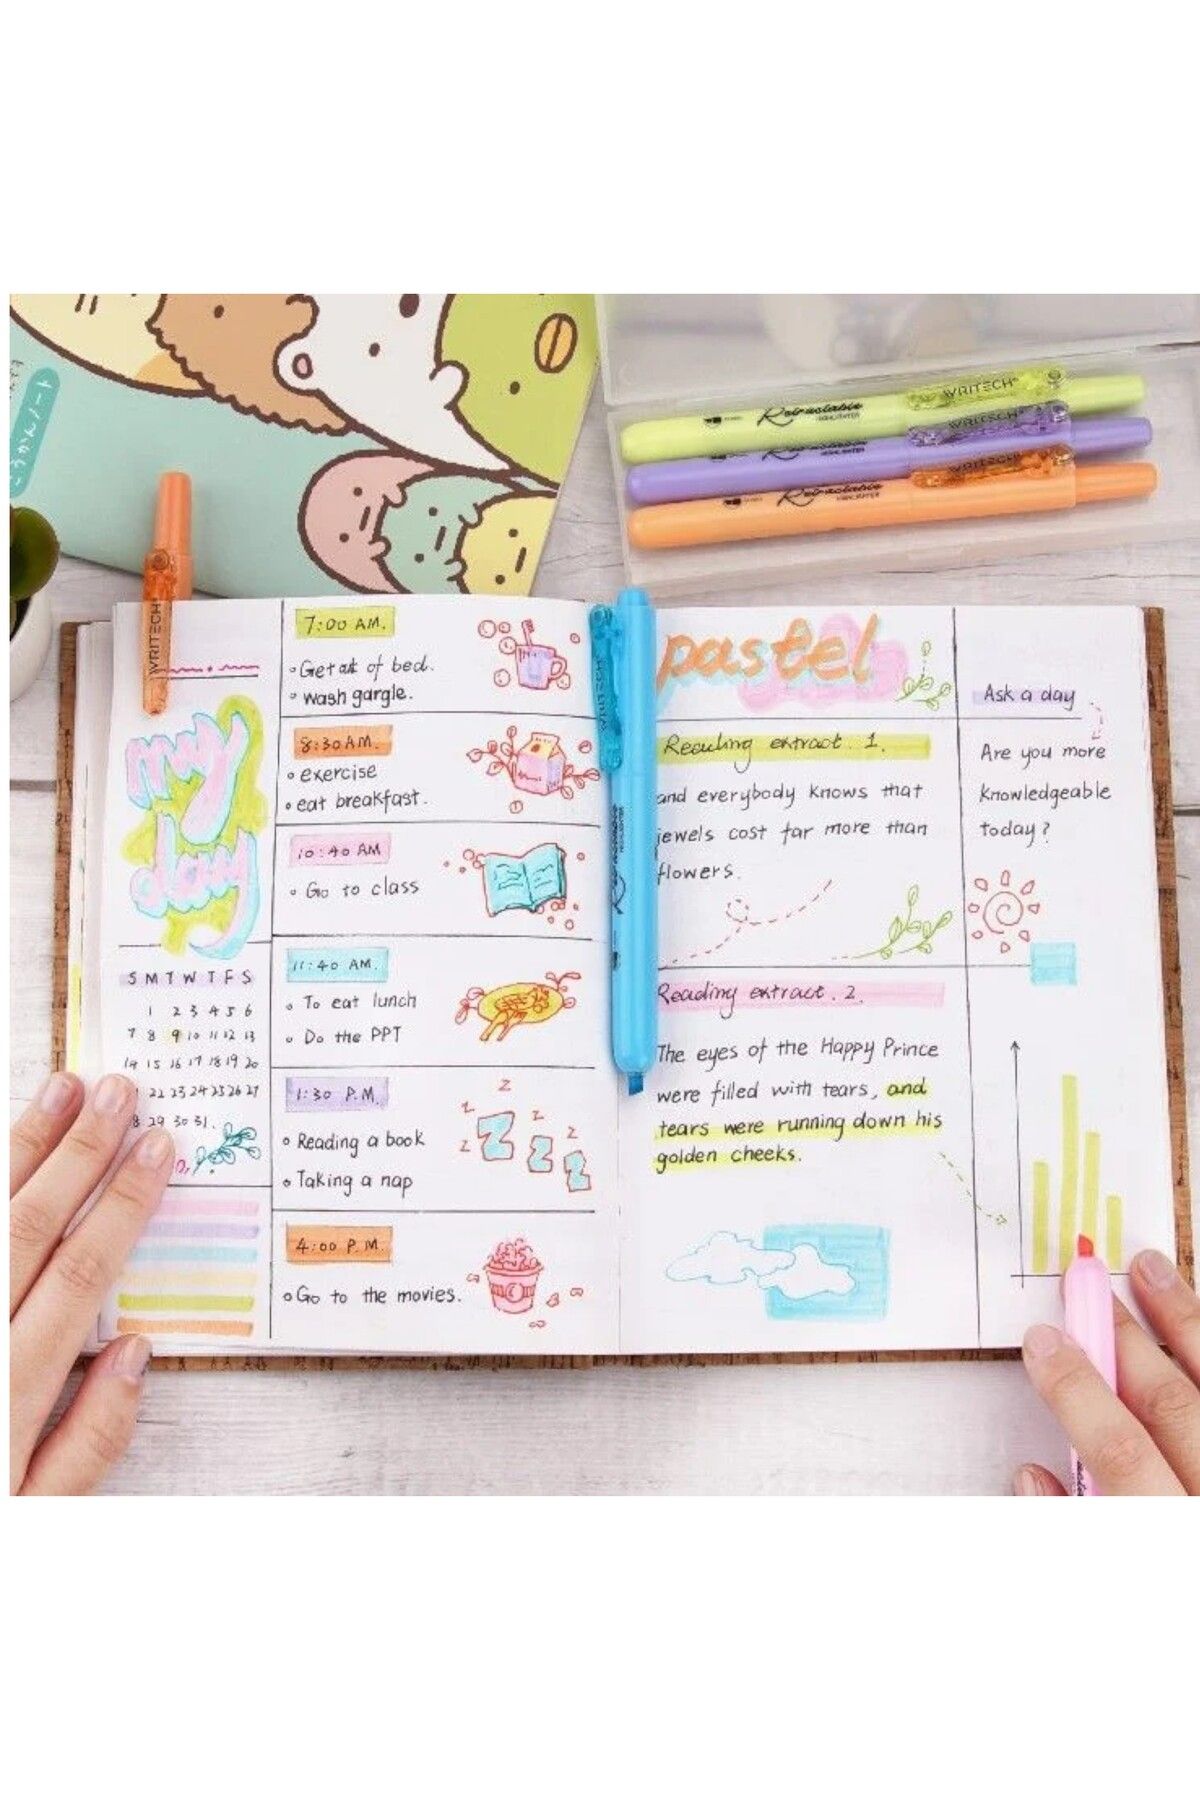 こうかんノート
WRITECH
Retractable
HIGHLIGHTER
WRITECH
Retractable
HIGHLIGHTER
WRITECH
Retractable
HIGHLIGHTER
WRITECH
my
day
S M T W T F S
1 2 3 4 5 6
7 8 9 10 11 12 13
14 15 16 17 18 19 20
22 23 24 25 26 27
8 29 30 31.
7:00 AM.
Get out of bed.
wash gargle.
8:30 AM.
exercise
eat breakfast.
10:40 AM
Go to class
11:40 AM.
To eat lunch
Do the PPT
1:30 P.M.
Reading a book
Taking a nap
Z Z Z
Z Z Z Z
Z
4:00 P.M.
Go to the movies.
WRITECH
Retractable
HIGHLIGHTER
pastel
Reading extract. 1.
and everybody knows that
jewels cost far more than
flowers.
Reading extract. 2.
The eyes of the Happy Prince
were filled with tears, and
tears were running down his
golden cheeks.
Ask a day
Are you more
knowledgeable
today?